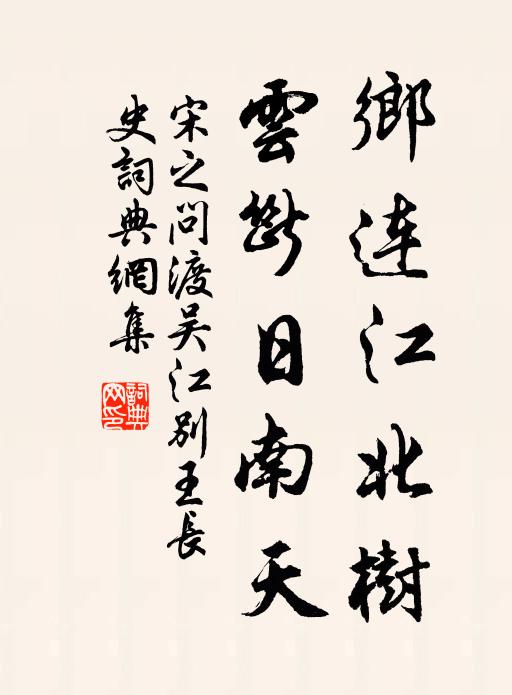 鄉連江北樹
雲斷日南天
宋之問渡吴江别王長
史詞典網集
詞典
网印